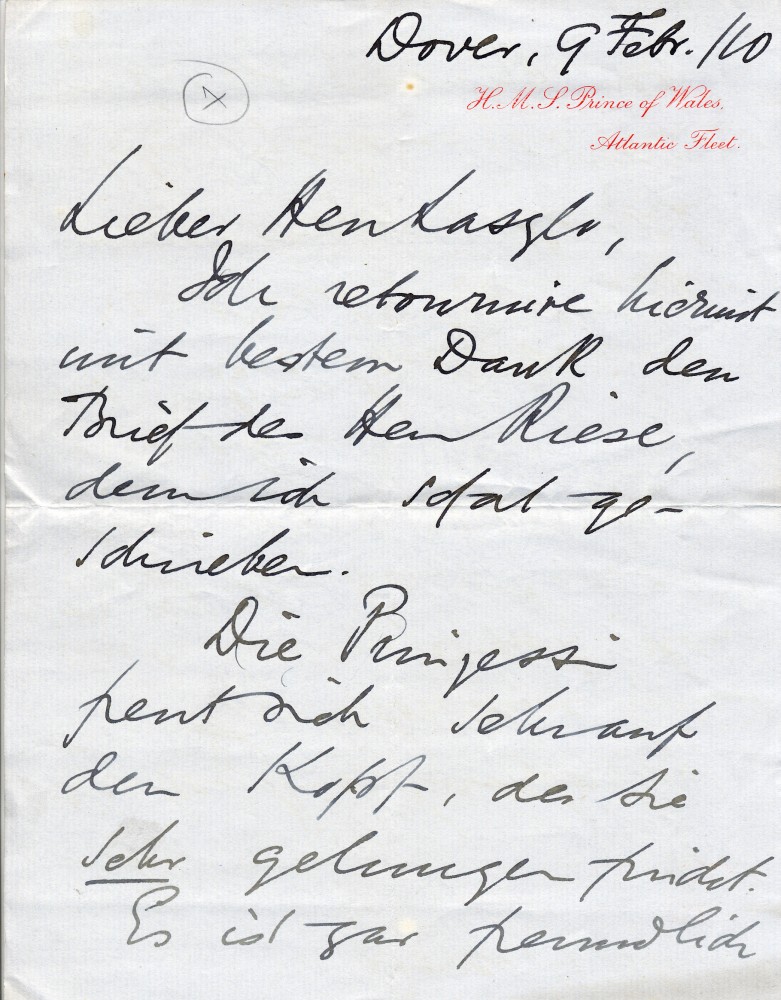 Dover, 9 Febr. /10
H.M.S. Prince of Wales.
Atlantic Fleet.
Lieber Herr Laszlo,
Ich retourniere hiermit
mit bestem Dank den
Brief des Herrn Riese,
dem ich sofort ge-
schrieben.
Die Prinzessin
freut sich sehr auf
den Kopf, den sie
sehr gelungen findet.
Es ist gar freundlich